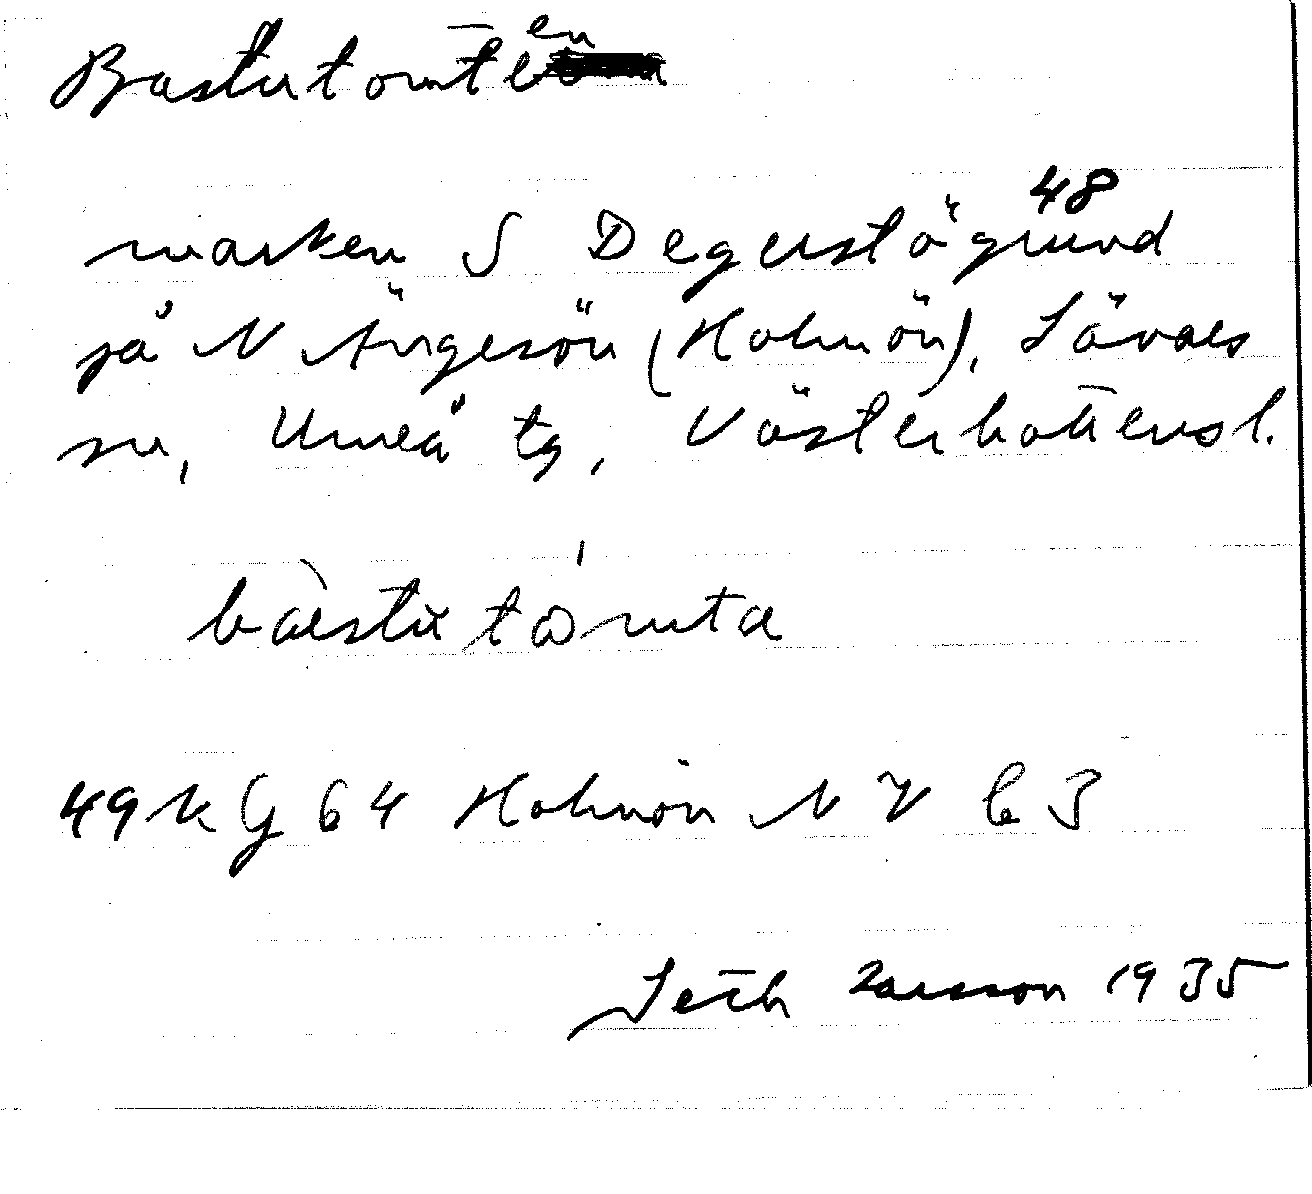 Bastutomten
marken S Degerstögrund 48
på N Ängesön (Holmön), Sävars
sn, Umeå tg, Västerbottensl.
49 k G 64 Holmön NV C 3
Seth Larsson 1935